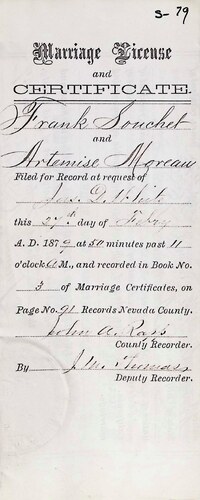 S-79
Marriage License
and
CERTIFICATE.
Frank Souchet
and
Artemise Moreau
Filed for Record at request of
Jas. D. White
this 27th day of Febry
A. D. 1879 at 50 minutes past 11
o'clock A M., and recorded in Book No.
3 of Marriage Certificates, on
Page No. 91 Records Nevada County.
John A. Ross
County Recorder.
By J. M.
Deputy Recorder.